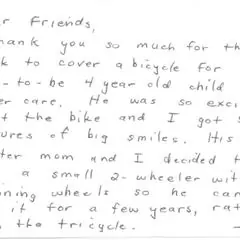 r Friends,
hank you so much for th
k to cover a bicycle for
-to-be 4 year old child
er care. He was so exci
t the bike and I got s
ures of big smiles. His
ter mom and I decided t
a small 2-wheeler wit
ning wheels so he can
it for a few years, rat
the tricycle.